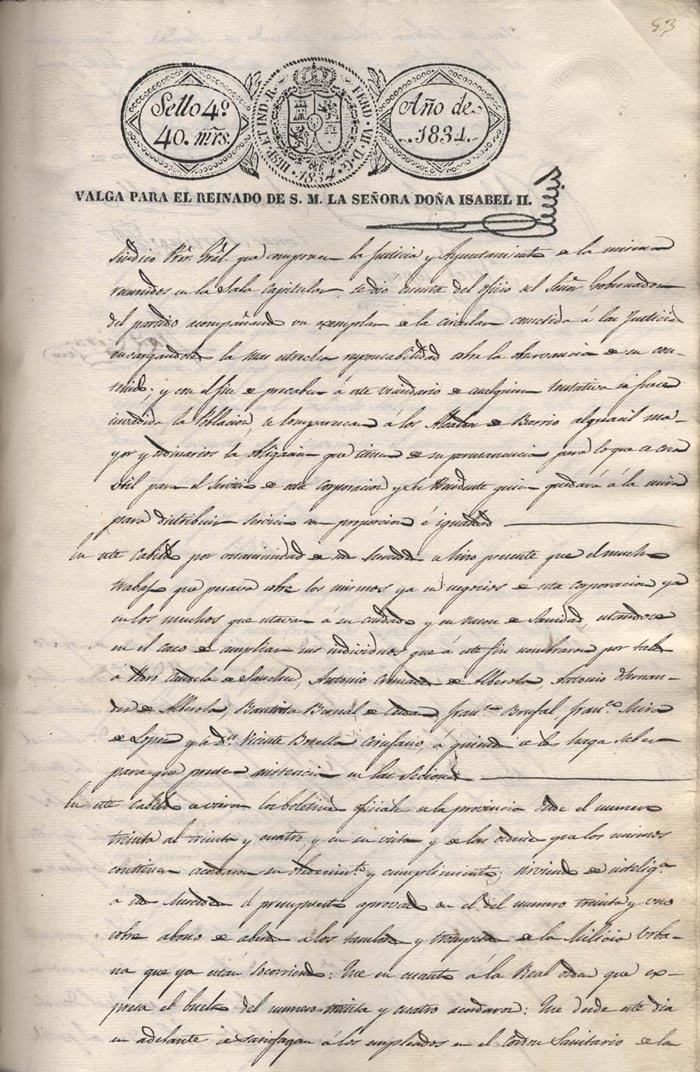 53
Sello 4º
40. mrs.
HISP. ET IND. R. FERD. VII. D. G. 1834.
Año de
1834.
VALGA PARA EL REINADO DE S. M. LA SEÑORA DOÑA ISABEL II.
Sindico Prór. Gräl. que componen la Justicia y Ayuntamiento de la misma
reunidos en la Sala Capitular, se dio cuenta del oficio del Señor Gobernador
del partido acompañando un exemplar de la circular cometida á las Justicias
encargandoles la mas estrecha responsabilidad sobre la observancia de su con-
tenido; y con el fin de precaber á este vecindario de cualquier tentativa si fuese
invadida la Poblacion se comparezcan á los Alcaldes de Barrio alguacil ma-
yor y ordinarios la obligacion que tienen de su permanencia para lo que ocurra
util para el servicio de esta corporacion y el Presidente quien quedará á la mira
para distribuir servicio en proporcion é igualdad
En este Cabildo por unanimidad se hizo presente que el mucho
trabajo que pesava sobre los mismos ya en negocios de esta corporacion ya
en los muchos que estavan á su cuidado y en razon de Sanidad, estandose
en el caso de ampliar sus individuos que á este fin nombraron por tales
a Antonio de Alberola, Antonio Hernan-
dez de Alberola, Bautista Bernal de franco. Brufal, franco. Mira
de Lopez y á Dn. Vicente Botella Cirujano, á quienes se les haga saber
para que presten asistencia en las Secciones
En este cabildo se vieron los boletines oficiales de la provincia desde el numero
treinta al treinta y cuatro, y en su vista y de las ordenes que los mismos
contienen acordaron su obedecimto. y cumplimiento; sirviendo de inteliga.
el presupuesto aprovado en el del numero treinta y uno
sobre abono de á los tambores y trompetas de la Milicia Urba-
na que ya van socorriendo: Que en cuanto á la Real orden que ex-
presa el buletin del numero treinta y cuatro acordaron: Que desde este dia
en adelante se satisfagan á los empleados en el Cordon Sanitario de la